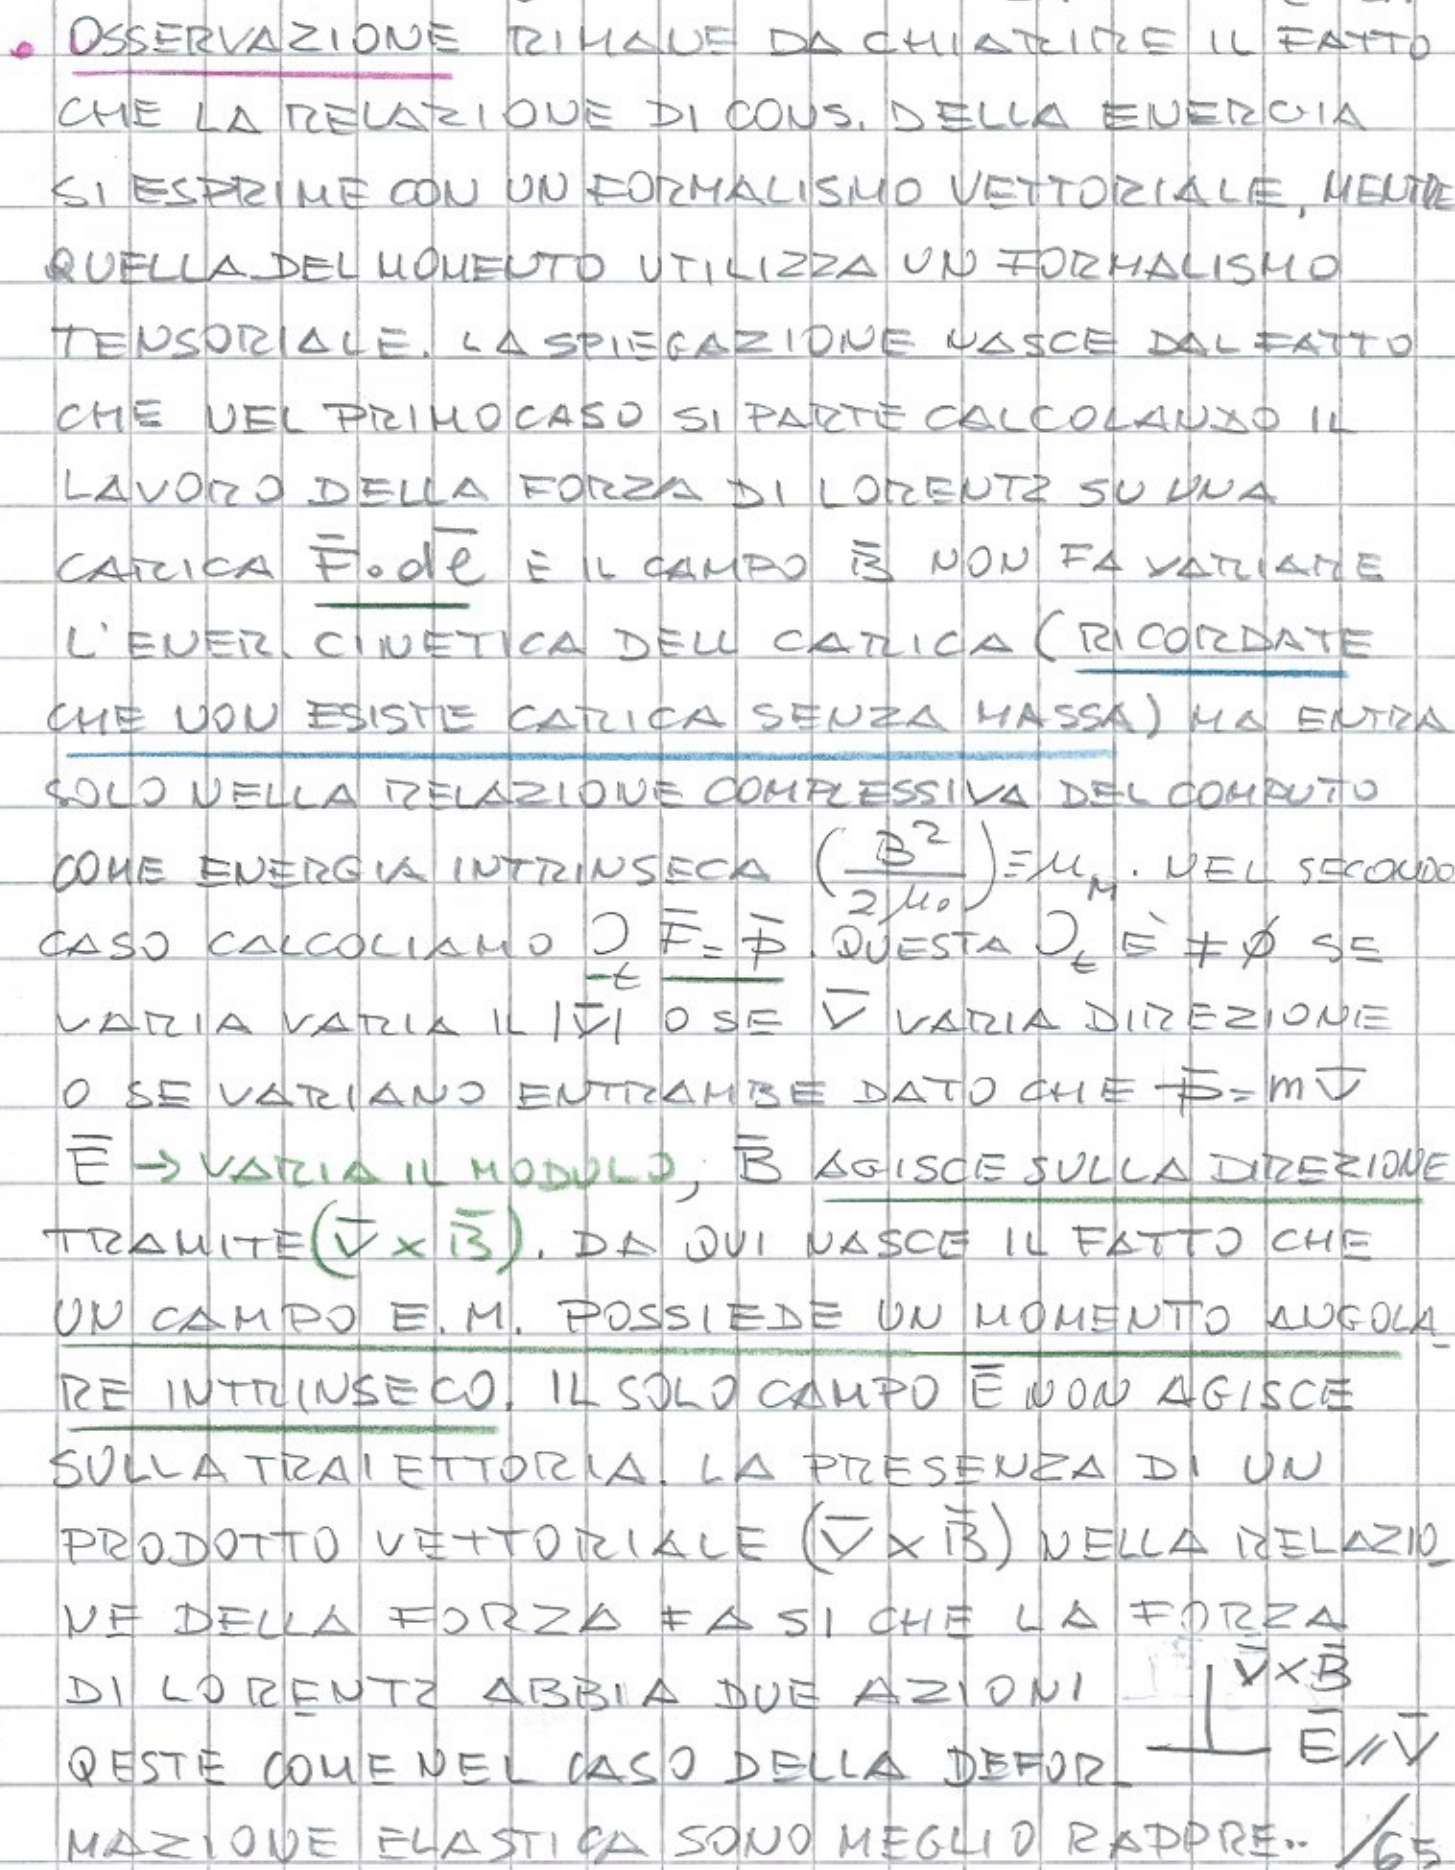 • OSSERVAZIONE RIMANE DA CHIARIRE IL FATTO
CHE LA RELAZIONE DI CONS. DELLA ENERGIA
SI ESPRIME CON UN FORMALISMO VETTORIALE, MENTRE
QUELLA DEL MOMENTO UTILIZZA UN FORMALISMO
TENSORIALE. LA SPIEGAZIONE NASCE DAL FATTO
CHE NEL PRIMO CASO SI PARTE CALCOLANDO IL
LAVORO DELLA FORZA DI LORENTZ SU UNA
CARICA F̄·dl̄ E IL CAMPO B̄ NON FA VARIARE
L'ENER. CINETICA DELL CARICA (RICORDATE
CHE NON ESISTE CARICA SENZA MASSA) MA ENTRA
SOLO NELLA RELAZIONE COMPLESSIVA DEL COMPUTO
COME ENERGIA INTRINSECA (B²/2μ₀)=μ_M. NEL SECONDO
CASO CALCOLIAMO ∂_t F̄=p̄. QUESTA ∂_t È ≠ ∅ SE
VARIA VARIA IL |V̄| O SE V̄ VARIA DIREZIONE
O SE VARIANO ENTRAMBE DATO CHE p̄=mV̄
Ē → VARIA IL MODULO, B̄ AGISCE SULLA DIREZIONE
TRAMITE (V̄×B̄). DA QUI NASCE IL FATTO CHE
UN CAMPO E.M. POSSIEDE UN MOMENTO ANGOLA-
RE INTRINSECO. IL SOLO CAMPO Ē NON AGISCE
SULLA TRAIETTORIA. LA PRESENZA DI UN
PRODOTTO VETTORIALE (V̄×B̄) NELLA RELAZIO-
NE DELLA FORZA FA SI CHE LA FORZA
DI LORENTZ ABBIA DUE AZIONI V̄×B̄
QESTE COME NEL CASO DELLA DEFOR- Ē//V̄
MAZIONE ELASTICA SONO MEGLIO RAPPRE.. /65